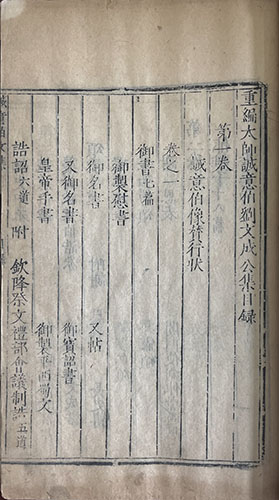 重編太師誠意伯劉文成公集目錄
第一卷
誠意伯像贊行狀
卷之一
御書七篇
御製慰書
御名書 又帖
又御名書 御寶詔書
皇帝手書 御製平西蜀文
誥詔六道 附 欽降祭文禮部會議制誥五道